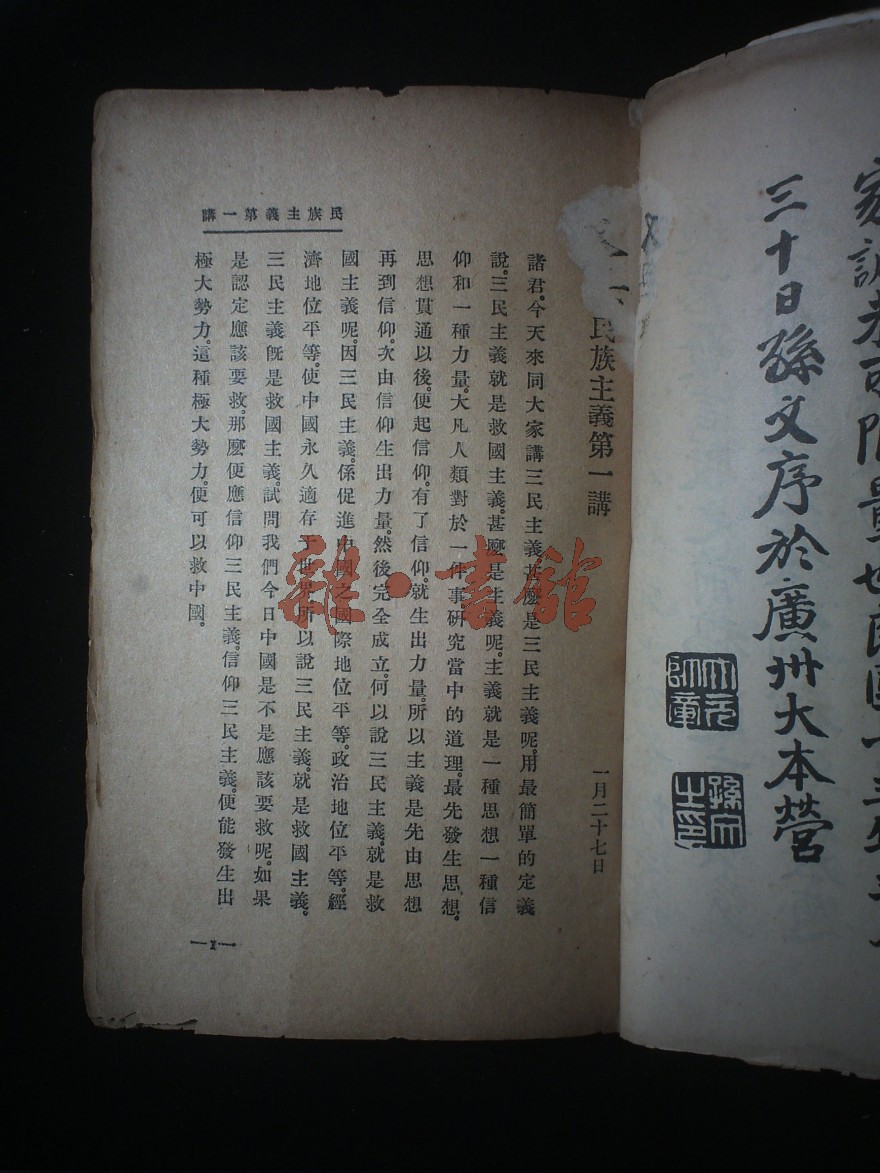 家訓者可限量也民國十三年三月
三十日孫文序於廣州大本營
大元帥章
孫文之印
民族主義第一講
一月二十七日
諸君。今天來同大家講三民主義。甚麽是三民主義呢。用最簡單的定義
說。三民主義就是救國主義。甚麽是主義呢。主義就是一種思想一種信
仰和一種力量。大凡人類對於一件事研究當中的道理。最先發生思想。
思想貫通以後。便起信仰。有了信仰。就生出力量。所以主義是先由思想
再到信仰。次由信仰生出力量。然後完全成立。何以說三民主義。就是救
國主義呢。因三民主義。係促進中國之國際地位平等。政治地位平等。經
濟地位平等。使中國永久適存于世界。所以說三民主義。就是救國主義。
三民主義旣是救國主義。試問我們今日中國是不是應該要救呢。如果
是認定應該要救。那麽便應信仰三民主義。信仰三民主義。便能發生出
極大勢力。這種極大勢力。便可以救中國。
民族主義第一講
—1—
雜·書館